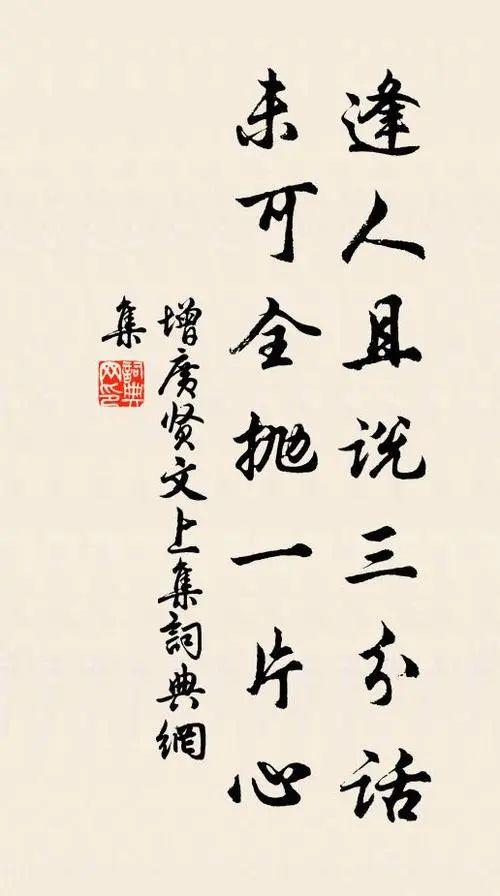 逢人且说三分话
未可全抛一片心
增广贤文上集詞典網
集
詞典网印